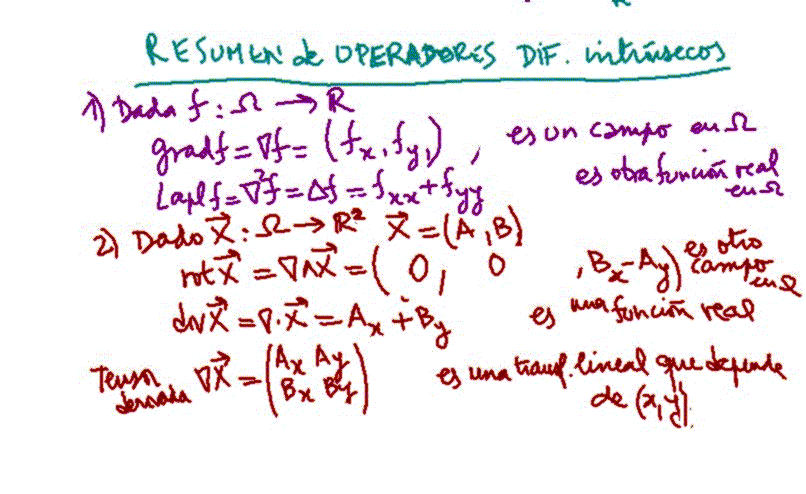 RESUMEN de OPERADORES DIF. intrínsecos
1) Dada f : Ω → R
grad f = ∇f = (fx, fy,) , es un campo en Ω
Lapl f = ∇²f = Δf = fxx + fyy es otra función real en Ω
2) Dado X⃗ : Ω → R² X⃗ = (A, B)
rot X⃗ = ∇∧X⃗ = ( 0, 0 , Bx - Ay) es otro campo en Ω
div X⃗ = ∇·X⃗ = Ax + By es una función real
Tensor derivada ∇X⃗ = (Ax Ay
Bx By) es una transf. lineal que depende
de (x,y).